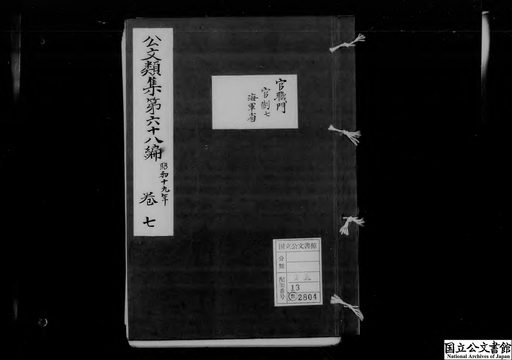 公文類集第六十八編 昭和十九年 巻七
官職門
官制七
海軍省
国立公文書館
分類
配架番号
13
2804
国立公文書館
National Archives of Japan